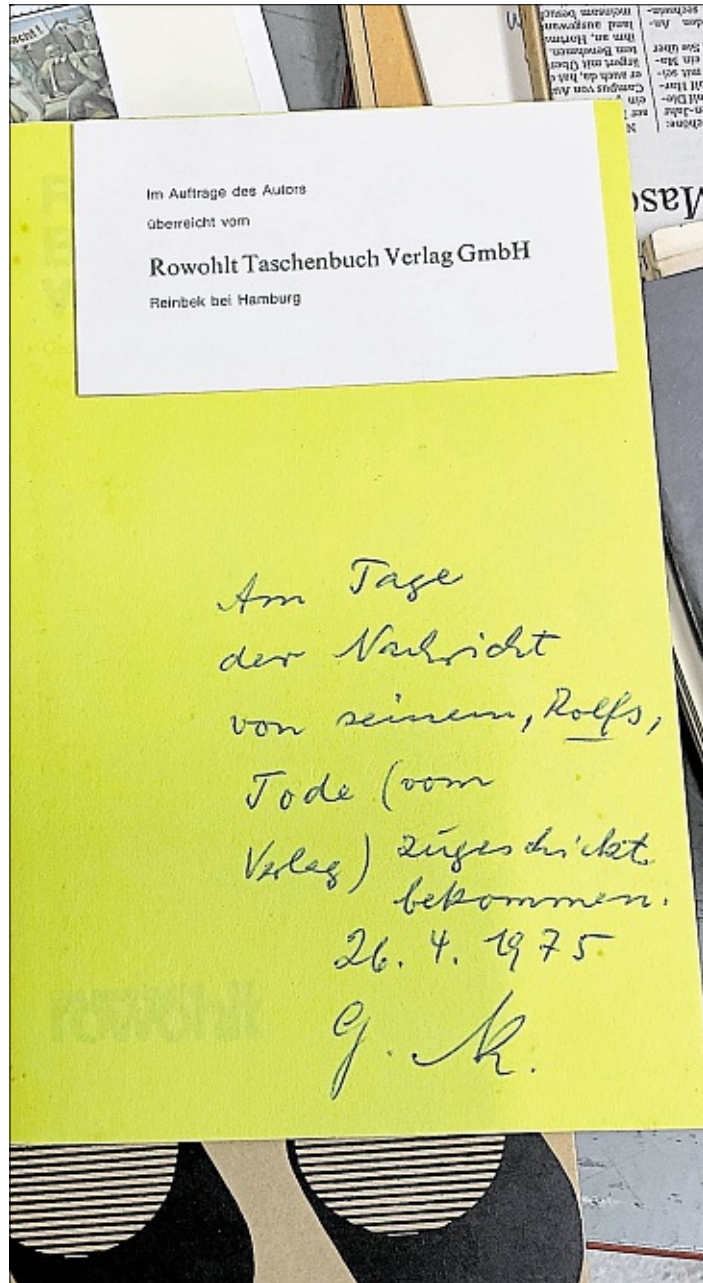 acht!
W
Im Auftrage des Autors
überreicht vom
Rowohlt Taschenbuch Verlag GmbH
Reinbek bei Hamburg
Am Tage
der Nachricht
von seinem, Rolfs,
Tode (vom
Verlag) zugeschickt
bekommen.
26. 4. 1975
G. K.
rowohlt